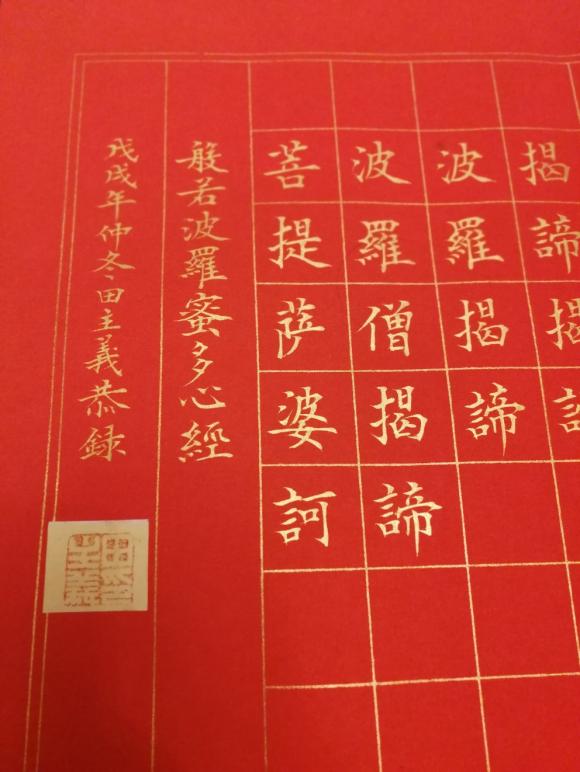 揭諦揭諦
波羅揭諦
波羅僧揭諦
菩提萨婆訶
般若波羅蜜多心經
戊戌年仲冬田主義恭録